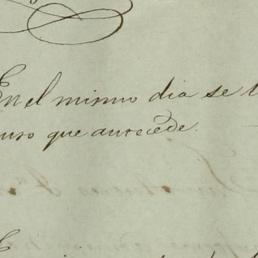 En el mismo dia se
que antecede.